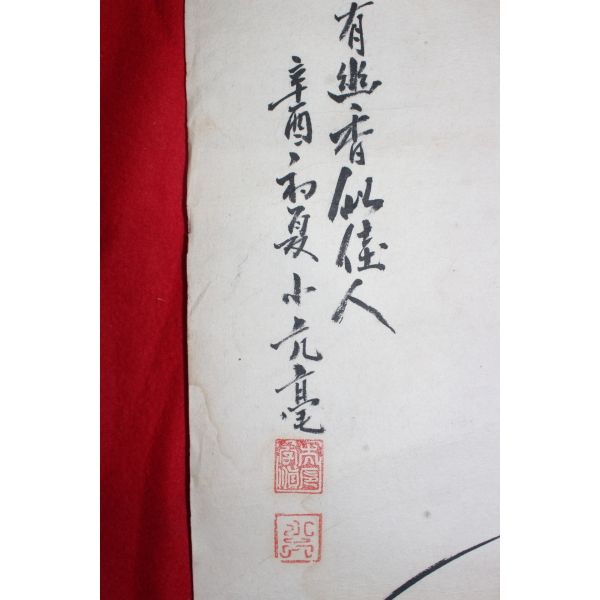 有幽香似佳人
辛酉初夏小亢毫